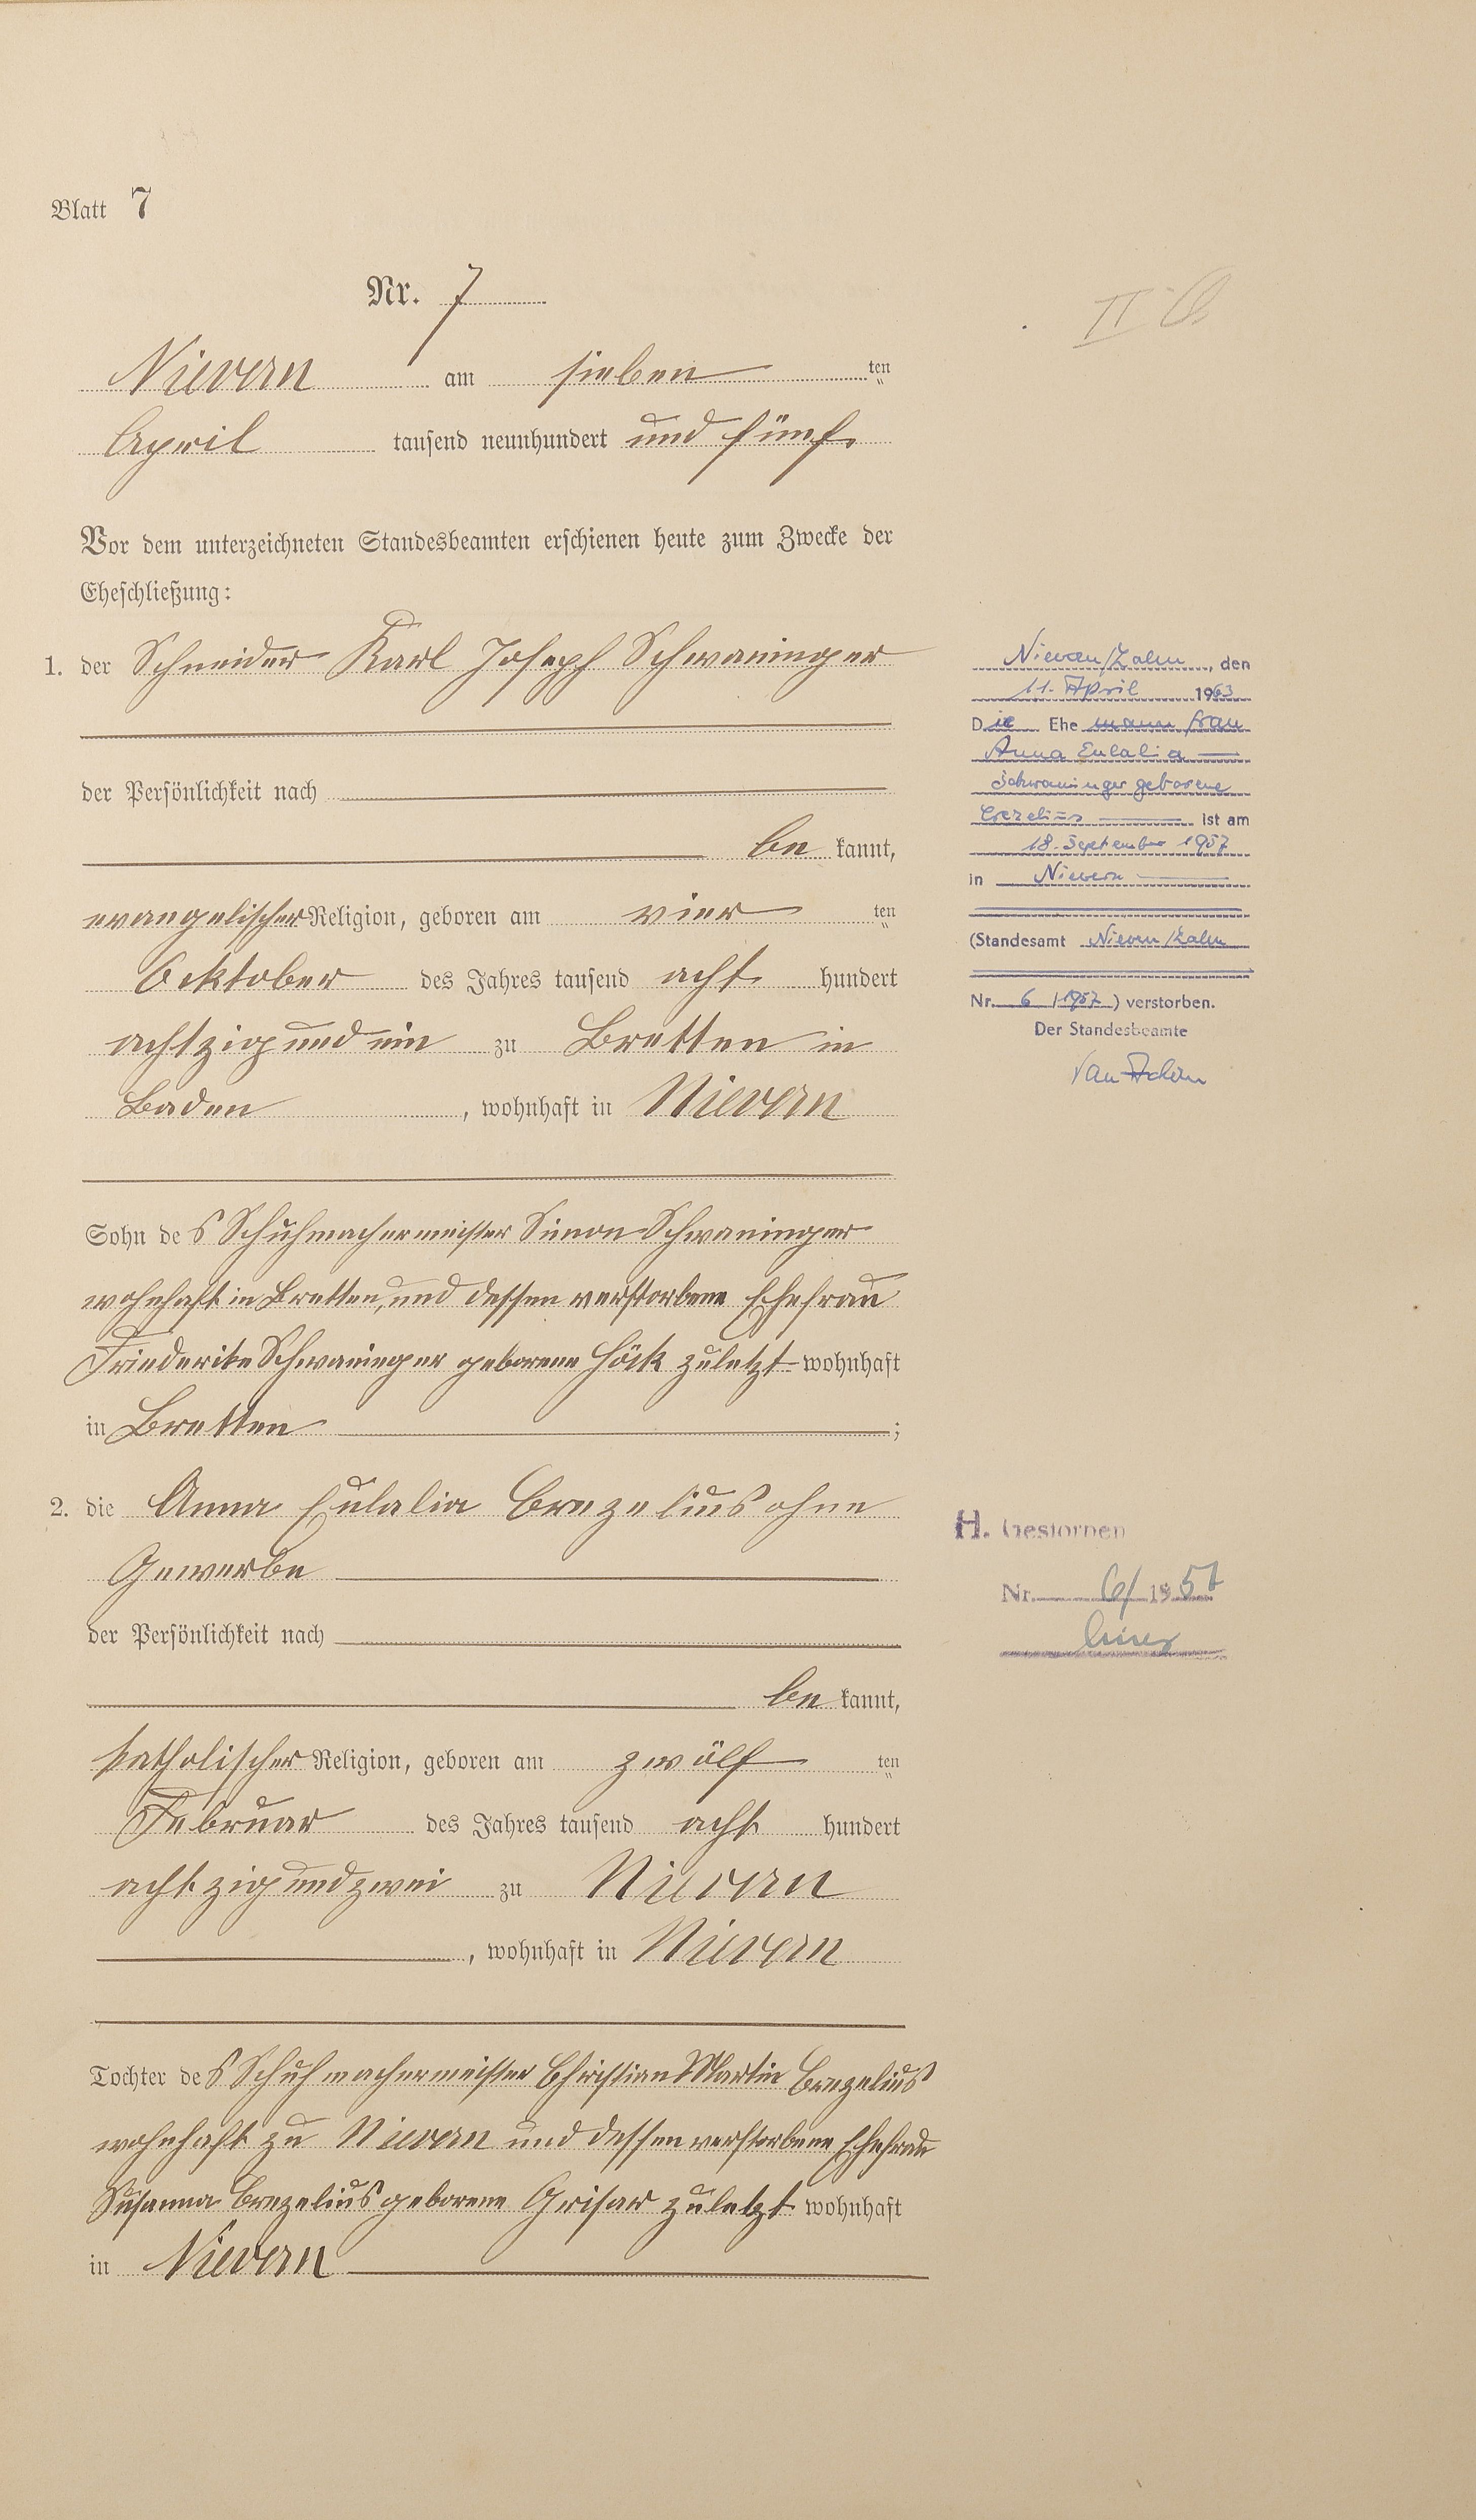 Blatt 7
Nr. 7
Nievern am sieben ten
April tausend neunhundert und fünf.
Vor dem unterzeichneten Standesbeamten erschienen heute zum Zwecke der
Eheschließung:
1. der Schneider Karl Joseph Schwaninger
der Persönlichkeit nach
be kannt,
evangelischer Religion, geboren am vier ten
Ocktober des Jahres tausend acht hundert
achtzig und ein zu Bretten in
Baden, wohnhaft in Nievern
Sohn des Schuhmachermeister Simon Schwaninger
wohnhaft in Bretten, und dessen verstorbene Ehefrau
Friederike Schwaninger geborene Höck zuletzt wohnhaft
in Bretten ;
2. die Anna Eulalia Crezelius ohne
Gewerbe
der Persönlichkeit nach
be kannt,
katholischer Religion, geboren am zwölf ten
Februar des Jahres tausend acht hundert
achtzig und zwei zu Nievern
, wohnhaft in Nievern
Tochter des Schuhmachermeister Christian Martin Crezelius
wohnhaft zu Nievern und dessen verstorbene Ehefrau
Susanna Crezelius geborene Grisar zuletzt wohnhaft
in Nievern
Nievern/Lahn, den
11. April 1963
Die Ehe mann frau
Anna Eulalia
Schwaninger geborene
Crezelius ist am
18. September 1957
in Nievern
(Standesamt Nievern/Lahn
Nr. 6 / 1957) verstorben.
Der Standesbeamte
H. Gestorben
Nr. 6/ 1957